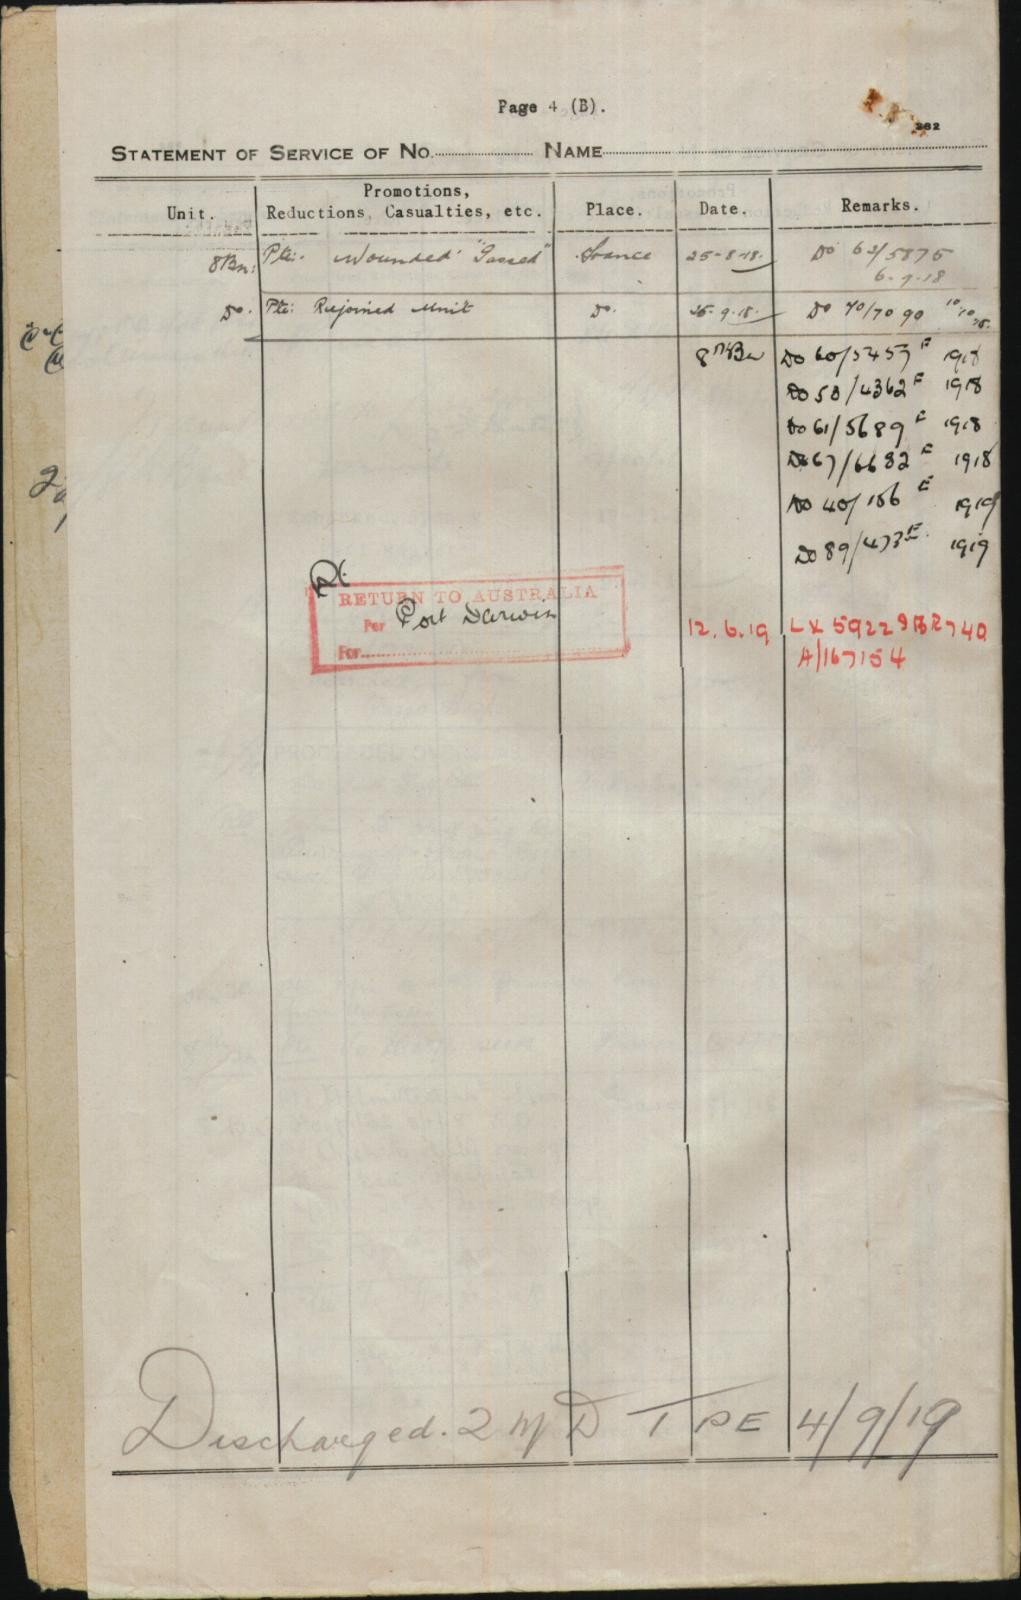 Page 4 (B).
262
STATEMENT OF SERVICE OF No. NAME
Unit. Promotions, Reductions, Casualties, etc. Place. Date. Remarks.
8 Bn: Pte: Wounded "Gassed" France 25-8-18. Do 62/5875
6-9-18
Do. Pte: Rejoined Unit Do. 25-9-18. Do 70/7090 10/10/18.
8th Bn Do 60/5457 E 1918
Do 50/4362 E 1918
Do 61/5689 E 1918
Do 67/6682 E 1918
Do 40/186 E 1919
Do 89/473 E 1919
Pt.
RETURN TO AUSTRALIA
Per Port Darwin 12.6.19 LX 5922
For A/167154
Discharged. 2 M D T P E 4/9/19